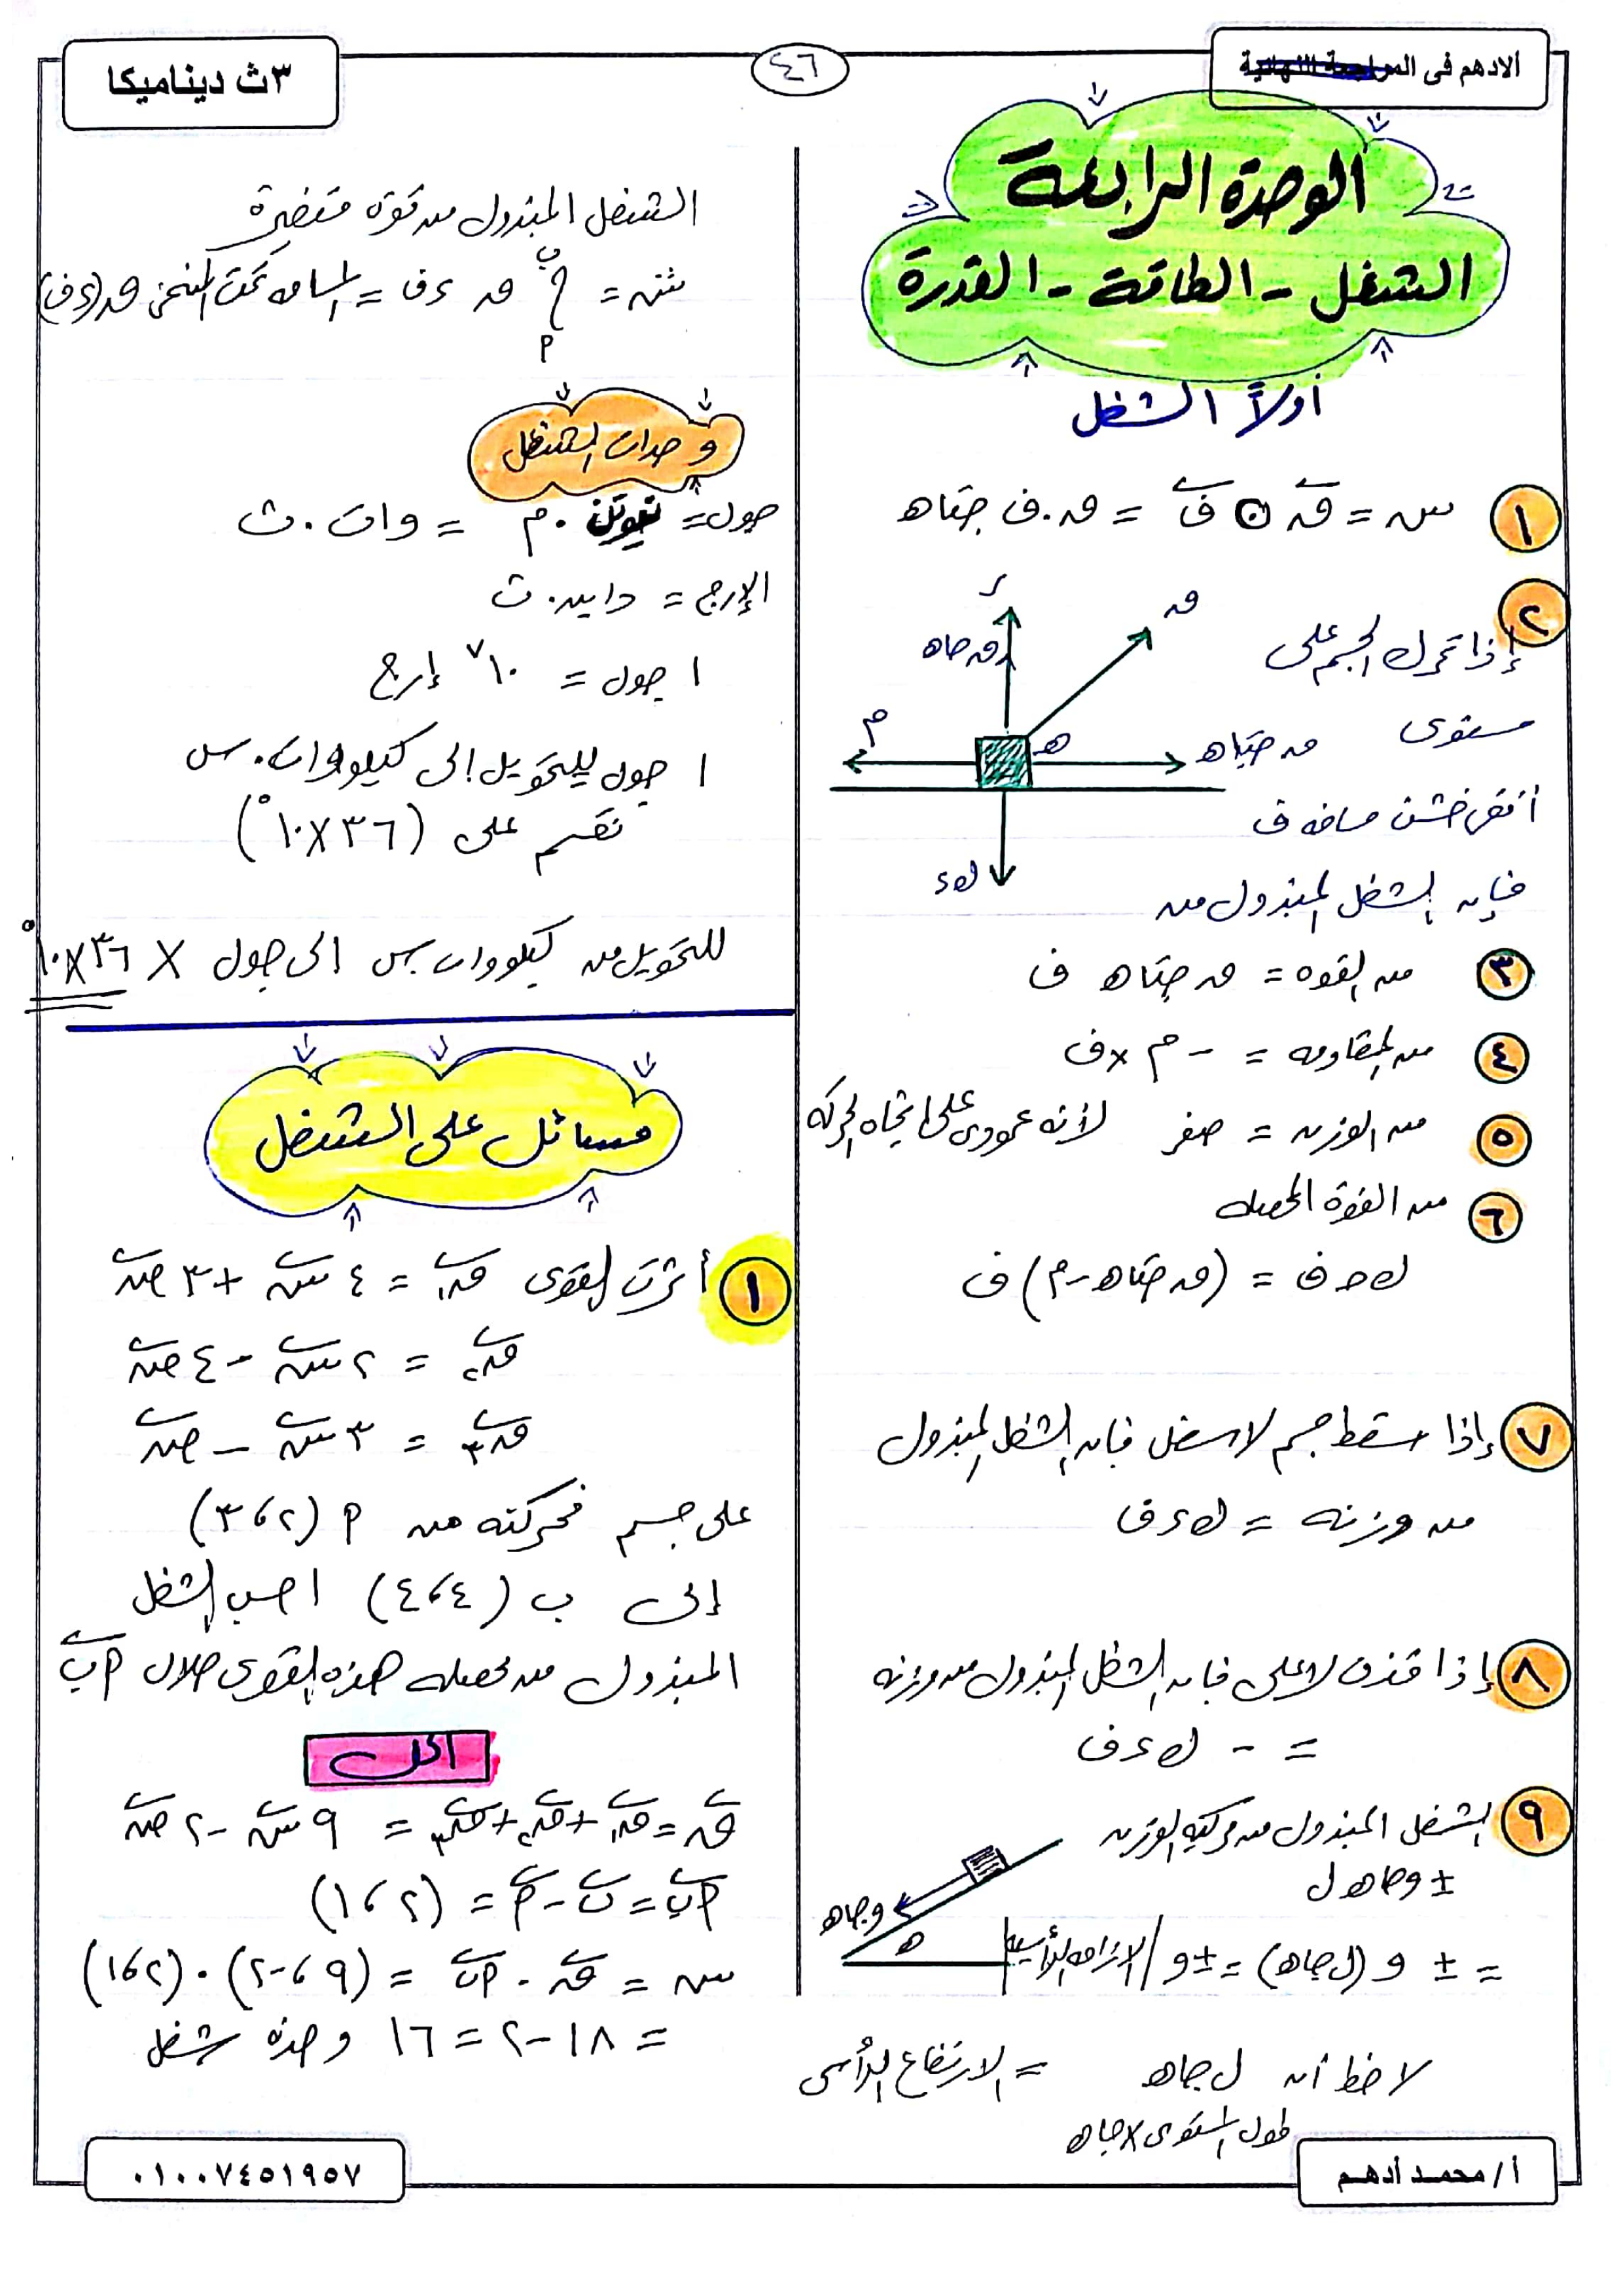 الادهم فى المراجعة النهائية
٤٦
٣ث ديناميكا
الوحدة الرابعة
الشغل - الطاقة - القدرة
أولاً الشغل
١ سہ = ق⃗ ⊙ ف⃗ = ق . ف جتاه
٢ إذا تحرك الجسم على
مستوى
أفقى خشن مسافه ف
فإن الشغل المبذول من
ر
ق
ق جاه
م
ه
ق جتاه
ك ء
٣ من القوه = ق جتاه ف
٤ من المقاومه = - م × ف
٥ من الوزن = صفر لأنه عمودى على اتجاه الحركه
٦ من القوة المحصله
ك ح ف = (ق جتاه - م) ف
٧ إذا سقط جسم لاسفل فإن الشغل المبذول
من وزنه = ك ء ف
٨ إذا قذف لاعلى فإن الشغل المبذول من وزنه
= - ك ء ف
٩ الشغل المبذول من مركبة الوزن
± و جاه ل
و جاه
ه
= ± و (ل جاه) = ± و / الازاحه الرأسيه
لاحظ أن ل جاه = الارتفاع الرأسى
طول المستوى × جاه
الشغل المبذول من قوة متغيرة
شہ = ∫ ب أ ق ء ف = المساحه تحت المنحنى ق (ء ف)
وحدات الشغل
جول = نيوتن . م = وات . ث
الإرج = داين . ث
١ جول = ١٠^٧ إرج
١ جول للتحويل إلى كيلووات . س
نقسم على (٣٦ × ١٠^٥)
للتحويل من كيلووات س الى جول × ٣٦ × ١٠^٥
مسائل على الشغل
١ أثرت القوى ق⃗١ = ٤ س⃗ + ٣ ص⃗
ق⃗٢ = ٢ س⃗ - ٤ ص⃗
ق⃗٣ = ٣ س⃗ - ص⃗
على جسم فحركته من أ (٢ ، ٣)
إلى ب (٤ ، ٤) احسب الشغل
المبذول من محصله هذه القوى خلال أ ب⃗
الحل
ق⃗ = ق⃗١ + ق⃗٢ + ق⃗٣ = ٩ س⃗ - ٢ ص⃗
أ ب⃗ = ب⃗ - أ⃗ = (٢ ، ١)
سہ = ق⃗ . أ ب⃗ = (٩ ، -٢) . (٢ ، ١)
= ١٨ - ٢ = ١٦ وحدة شغل
أ / محمد أدهم
٠١٠٠٧٤٥١٩٥٧